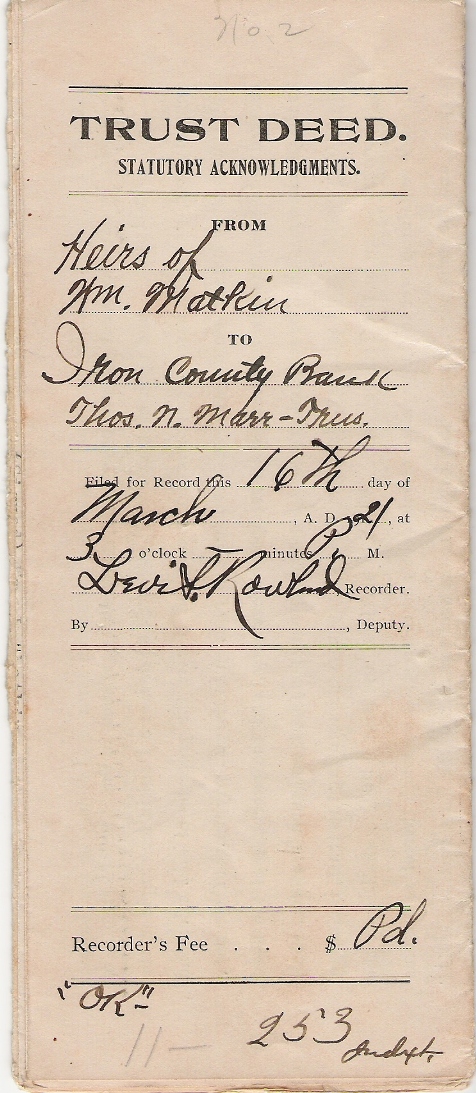 No 2
TRUST DEED.
STATUTORY ACKNOWLEDGMENTS.
FROM
Heirs of
Wm. Matkin
TO
Iron County Bank
Thos. N. Marr - Trus.
Filed for Record this 16th day of
March, A. D. 21, at
3 o'clock minutes P. M.
Levi S. Rowland, Recorder.
By , Deputy.
Recorder's Fee . . . $ Pd.
"OK"
11- 253
Indxt.